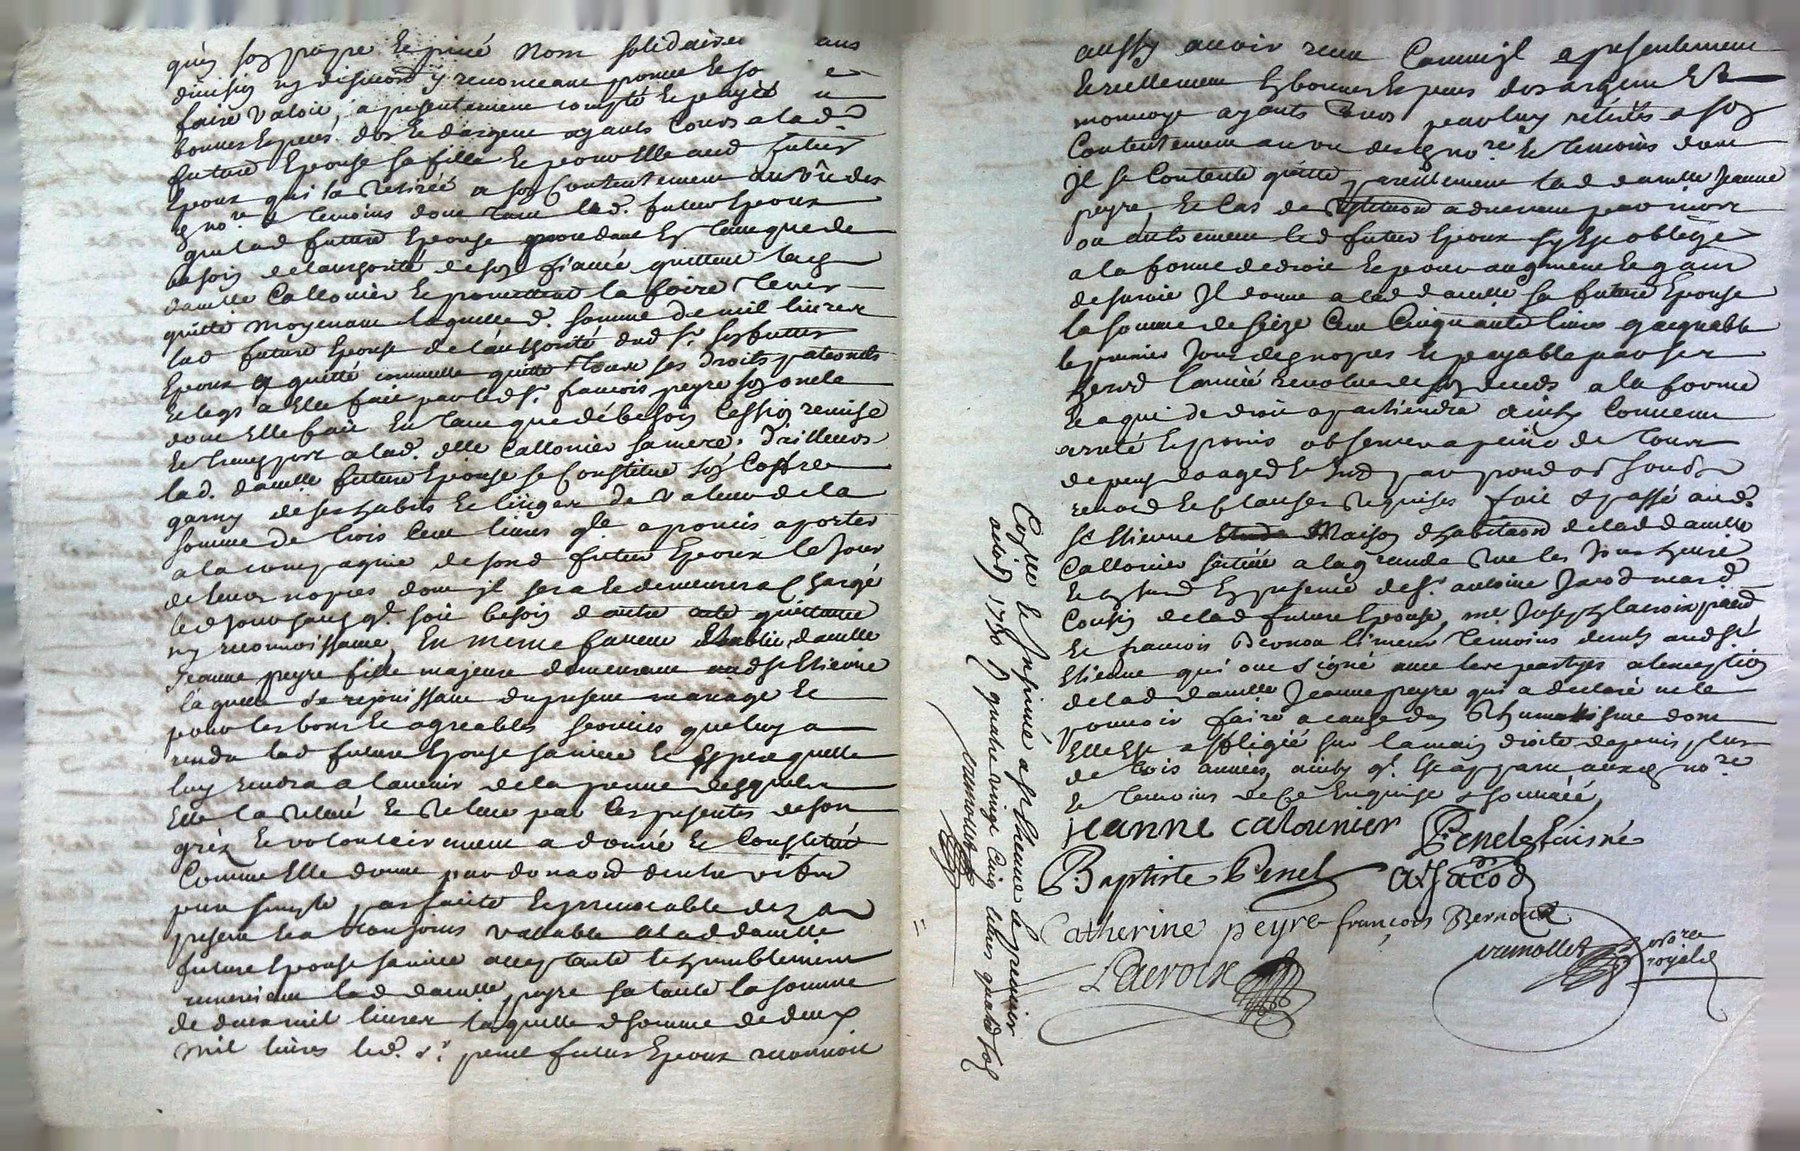 qu'en son propre et privé nom solidairement sans
division ny discution y renonceant promet et so
faire valoir, a presentement compté et payé en
bonnes especes d'or et d'argent ayants cours a lad.
future Epouse sa fille et pour elle aud. futur
Epoux qui la retirée a son contentement au vû des
no.re et temoins dont tant led. futur Epoux
que lad future Epouse procedant en tant que de
besoin de lauthorité de son fiancé quittent lad.
damlle Callonier et promettent la faire tenir
quitte moyenant laquelle d. somme de mil livres
lad future Epouse de l'authorité dud sr. son futur
Epoux a quitté comme elle quitte tous ses droits paternels
et legs a elle fait par led sr. francois peyre son oncle
dont elle fait en tant que de besoin cession remise
et transport a lad. dlle Callonier sa mere. D'ailleurs
lad. damlle future Epouse se constitue son coffre
garny de ses habits et linges de valeur de la
somme de trois cent livres qlle a promis aporter
a la compagnie de sond futur Epoux le jour
de leurs nopces dont il sera et demeurera chargé
led jour sans q. soit besoin d'autre acte quittance
ny reconnoissance, En meme faveur Etablie damlle
Jeanne peyre fille majeure demeurant aud St Etienne
laquelle se rejouissant du present mariage et
pour les bons et agreables services que luy a
rendu lad future Epouse sa niece et espere quelle
luy rendra a lavenir de la preuve desquels
Elle la relevé et releve par ces presentes de son
grez et volontairement a donné et constitué
Comme elle donne par donaon d'entre vifs
pure simple parfaite et irrevocable dez a
present et a toujours vallable a lad damlle
future Epouse sa niece acceptante et humblement
remerciant lad damlle peyre sa tante la somme
de deux mil livres laquelle d somme de deux
mil livres led. sr. penel futur Epoux reconnoit
aussy avoir receu comme il a presentement
et reellement en bonnes especes d'or argent et
monnoye ayants cours par luy retirées a son
Contentement au vu desd no.re et temoins dont
Il se Contente quitte pareillement lad damlle Jeanne
peyre, et cas de restitution advenant par mort
ou autrement led futur Epoux s'y est obligé
a la forme de droit et pour augment et gain
de survie Il donne a lad damlle sa future Epouse
la somme de seize cent cinquante livres gaignable
le premier jour des nopces et payable par ses
heirs l'année revolue de son deceds a la forme
et a qui de droit apartiendra ainsy convenu
arreté et promis observer a peine de tous
depens domages et
renond et clauses requises fait et passé aud.
St Etienne Maison d'habitaon de lad damlle
Callonier scituée a la grande rue les jour heure
et an susd en presence de sr. antoine Jacod mard
Cousin de lad future Epouse, me. Joseph lacroix
et francois Bernou limeur temoins demts aud St
Etienne qui ont signé avec les partyes a lexception
de lad damlle Jeanne peyre qui a declaré ne le
pouvoir faire a cause d'un Rhumatisme dont
elle est affligée sur la main droite depuis plus
de trois années, ainsy q. est aparu auxd no.re
et temoins de ce Enquise et sommée,
jeanne calounier Penel laisné
Baptiste Penel A Jacod
Catherine peyre françois Bernou
Lacroix
vrinollet nore royal
Copie et Insinué a St Etienne le premier
aout 1750 R quatre vingt cinq livres quatre sols
vrinollet